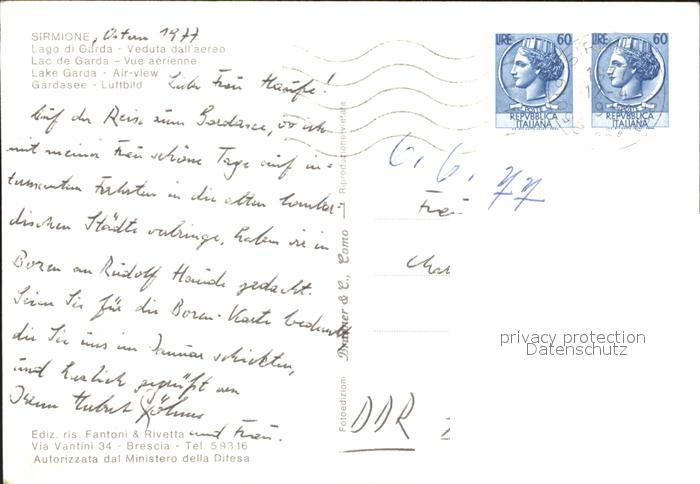 SIRMIONE, Ostern 1977
Lago di Garda - Veduta dall'aereo
Lac de Garda - Vue aérienne
Lake Garda - Air-view
Gardasee - Luftbild
Liebe Frau
Auf der Reise zum Gardasee, wo ich
mit meiner Frau schöne Tage auf in-
teressanten Fahrten in die alten lombar-
dischen Städte verbringe, haben wir in
Bozen an Rudolf gedacht.
Seien Sie für die Bozen-Karte bedankt
die Sie uns im Januar schickten,
und herzlich gegrüßt von
Ihrem Hubert
und Frau.
Ediz. ris. Fantoni & Rivetta
Via Vantini 34 - Brescia - Tel. 59316
Autorizzata dal Ministero della Difesa
Fotoedizioni Brunner & C., Como - Riproduzione vietata
LIRE 60
POSTE
REPVBBLICA
ITALIANA
LIRE 60
POSTE
REPVBBLICA
ITALIANA
6. 6. 77
Frau
DDR
privacy protection
Datenschutz